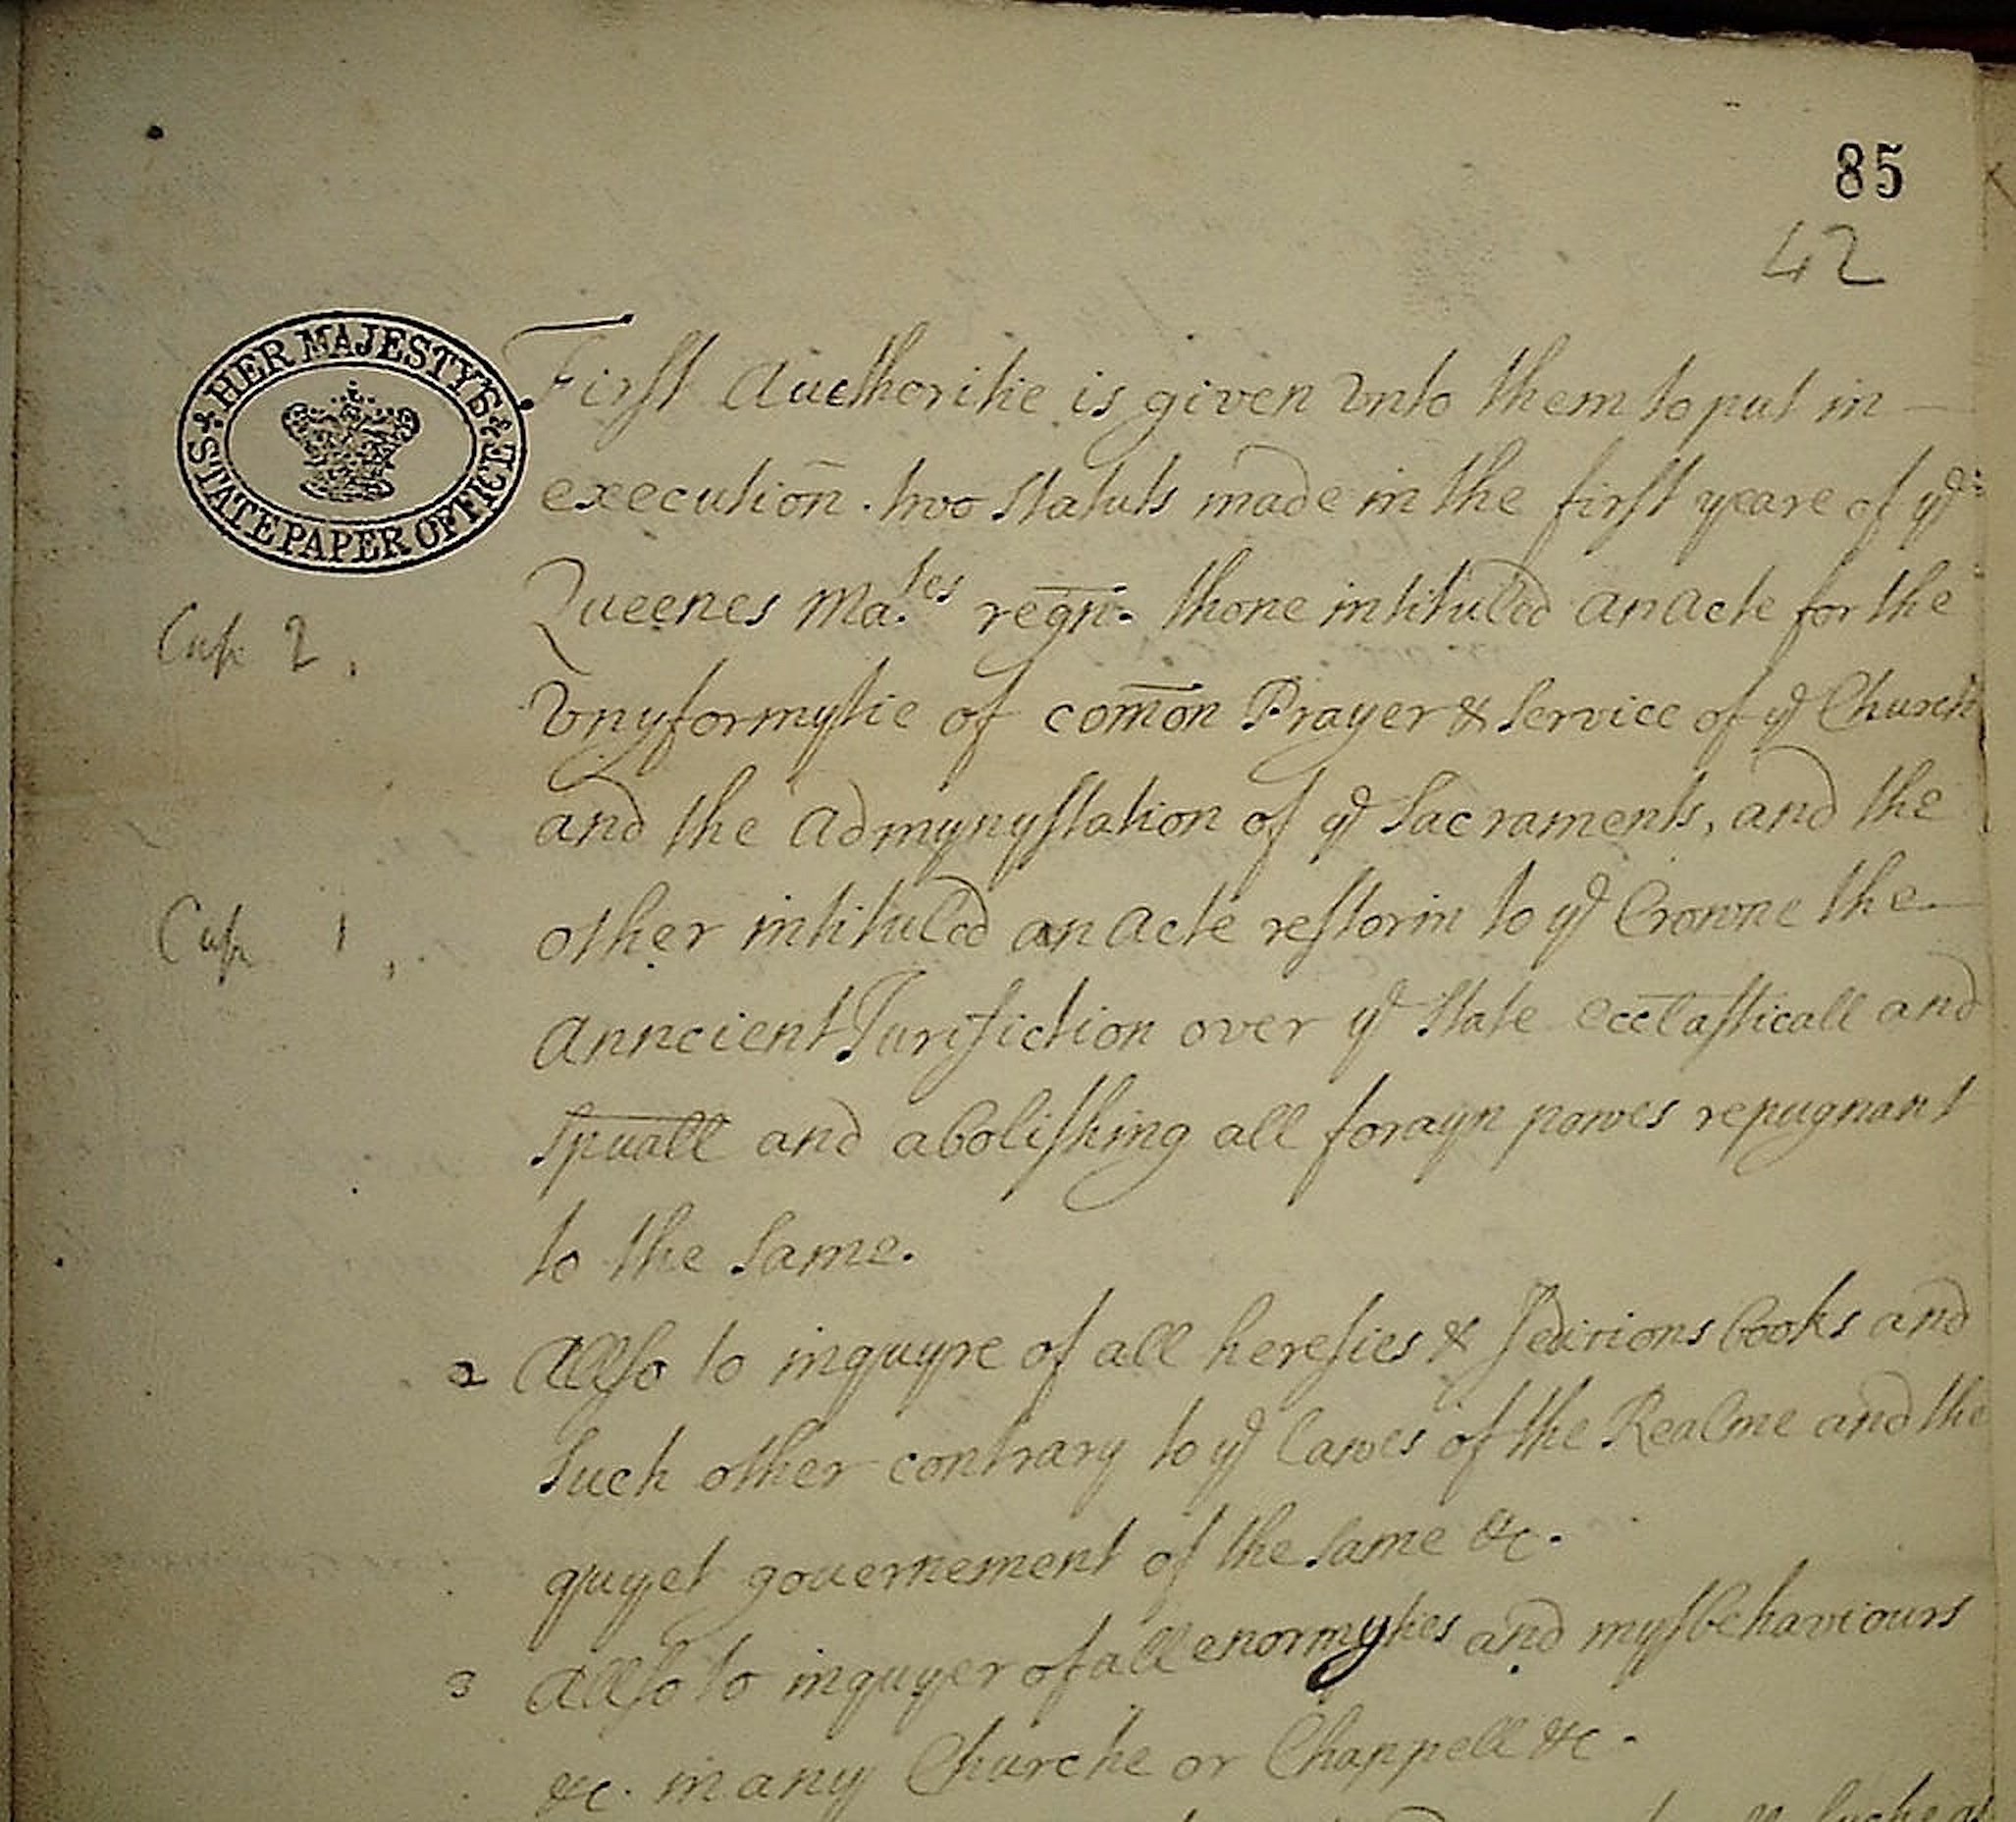 85
42
HER MAJESTY'S
STATE PAPER OFFICE
First Aucthoritie is given vnto them to put in
execution̄. two statuts made in the first yeare of yᵉ
Cap 2.
Queenes Ma.tes regn̄. thone intituled an Acte for the
Vnyformytie of com̄on Prayer & Service of yᵉ Church
and the Admynystation of yᵉ Sacraments, and the
Cap 1,
other intituled an Acte restorin to yᵉ Crowne the
Anncient Jurisfiction over yᵉ State eccl̄asticall and
sp̄uall and abolishing all forayn powes repugnant
to the Same.
2 Allso to inquyre of all heresies & Seditions books and
Such other contrary to yᵉ lawes of the Realme and the
quyet gouernement of the Same &c.
3 Allso to inquyer of all enormyties and mysbehaviours
&c. in any Churche or Chappell &c.